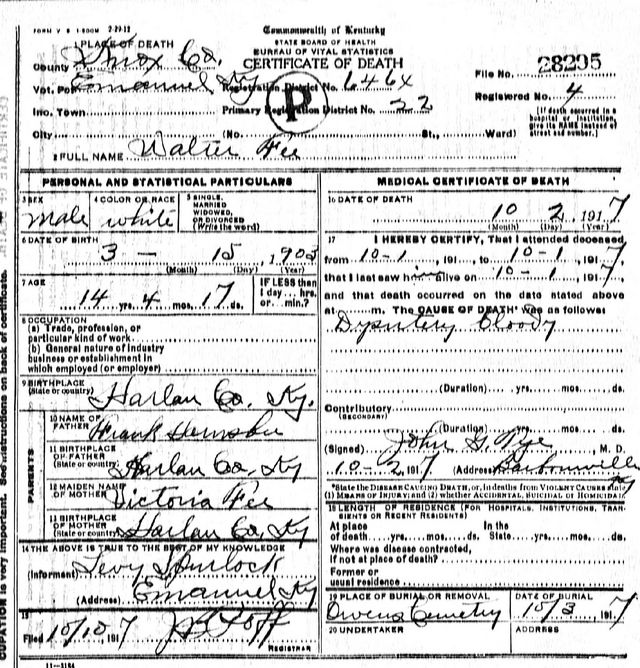 FORM V. S. 1-500M 2-29-12
Commonwealth of Kentucky
STATE BOARD OF HEALTH
BUREAU OF VITAL STATISTICS
CERTIFICATE OF DEATH
1 PLACE OF DEATH
County Knox Co.
Vot. Pct. Emanuel Ky Registration District No. 6464
Inc. Town Primary Registration District No. 22
City (No. St., Ward)
File No. 28295
Registered No. 4
[If death occurred in a hospital or institution, give its NAME instead of street and number.]
P
2 FULL NAME Walter Fee
PERSONAL AND STATISTICAL PARTICULARS
3 SEX
male
4 COLOR OR RACE
white
5 SINGLE, MARRIED WIDOWED, OR DIVORCED
(Write the word)
6 DATE OF BIRTH
3 - 15, 1903
(Month) (Day) (Year)
7 AGE
14 yrs. 4 mos. 17 ds.
IF LESS than 1 day... hrs. or... min.?
8 OCCUPATION
(a) Trade, profession, or particular kind of work
(b) General nature of industry business or establishment in which employed (or employer)
9 BIRTHPLACE
(State or country) Harlan Co. Ky.
PARENTS
10 NAME OF FATHER Frank
11 BIRTHPLACE OF FATHER
(State or country) Harlan Co, Ky
12 MAIDEN NAME OF MOTHER Victoria Fee
13 BIRTHPLACE OF MOTHER
(State or country) Harlan Co, Ky
14 THE ABOVE IS TRUE TO THE BEST OF MY KNOWLEDGE
(Informant) Levy
(Address) Emanuel Ky
15
Filed 10/10 1917
REGISTRAR
11-3184
MEDICAL CERTIFICATE OF DEATH
16 DATE OF DEATH
10 2, 1917
(Month) (Day) (Year)
17 I HEREBY CERTIFY, That I attended deceased
from 10-1, 191..., to 10-1, 1917,
that I last saw him alive on 10-1, 1917,
and that death occurred on the date stated above
at m. The CAUSE OF DEATH* was as follows:
Dysintery Bloody
(Duration) yrs. mos. ds.
Contributory
(SECONDARY)
(Duration) yrs. mos. ds.
(Signed) John G. Tye M. D.
10-2, 1917 (Address) Barbourville Ky
*State the DISEASE CAUSING DEATH, or, in deaths from VIOLENT CAUSES state (1) MEANS OF INJURY; and (2) whether ACCIDENTAL, SUICIDAL or HOMICIDAL.
18 LENGTH OF RESIDENCE (FOR HOSPITALS, INSTITUTIONS, TRANSIENTS OR RECENT RESIDENTS)
At place of death yrs. mos. ds. In the State yrs. mos. ds.
Where was disease contracted, if not at place of death?
Former or usual residence
19 PLACE OF BURIAL OR REMOVAL
Owens Cemetry
DATE OF BURIAL
10/3 1917
20 UNDERTAKER
ADDRESS
OCCUPATION is very important. See instructions on back of certificate.